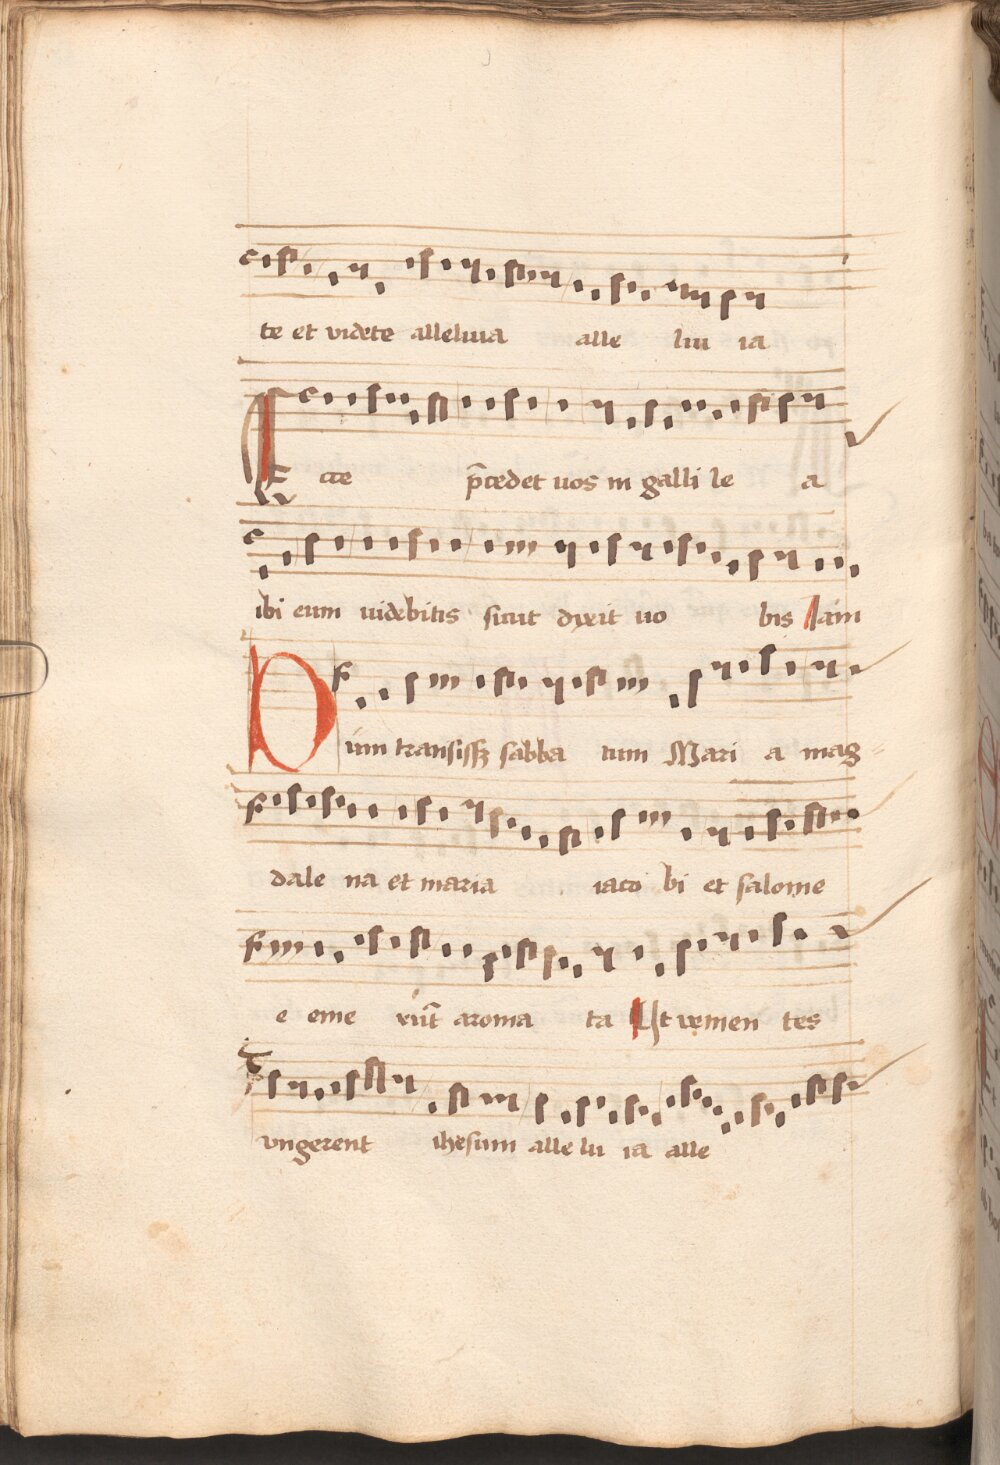 te et videte alleluia alle lui ia
Ecce p̄cedet uos in galli le a
ibi eum uidebitis sicut dixit uo bis Iam
Dum transisſꝫ sabba tum Mari a mag
dale na et maria iaco bi et salome
e eme rūt aroma ta Ut venien tes
vngerent ihesum alle lu ia alle